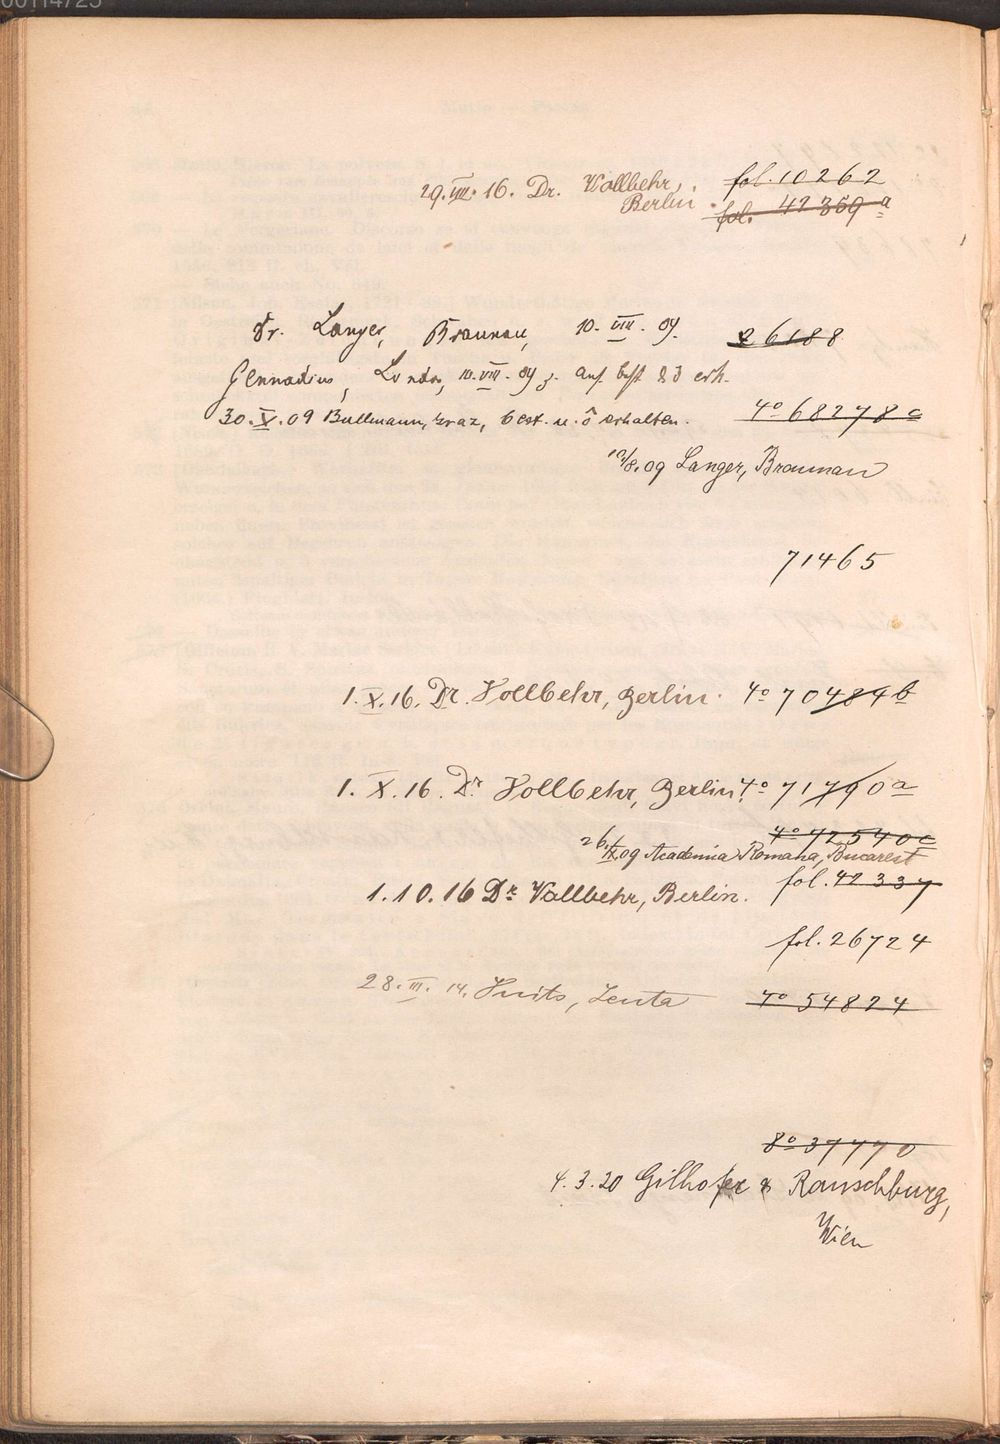 00114725
29. VIII. 16. Dr. Vollbehr, fol. 10262
Berlin. fol. 42369 a
Dr. Langer, Braunau, 10. VIII. 09. 26188
Gennadius, London, 10. VIII. 09 auf best erh.
30. X. 09 Bullmann, Graz, best. u. ō erhalten. 4° 68278 c
12/8. 09 Langer, Braunau
71465
1. X. 16. Dr. Vollbehr, Berlin. 4° 70484 b
1. X. 16. Dr. Vollbehr, Berlin. 4° 71790 a
4° 72540 c
26./X. 09 Academia Romana, Bucarest
1. 10. 16 Dr. Vollbehr, Berlin. fol. 42337
fol. 26724
28. III. 14. Zenta 4° 54824
8° 37770
4. 3. 20 Gilhofer & Ranschburg,
Wien